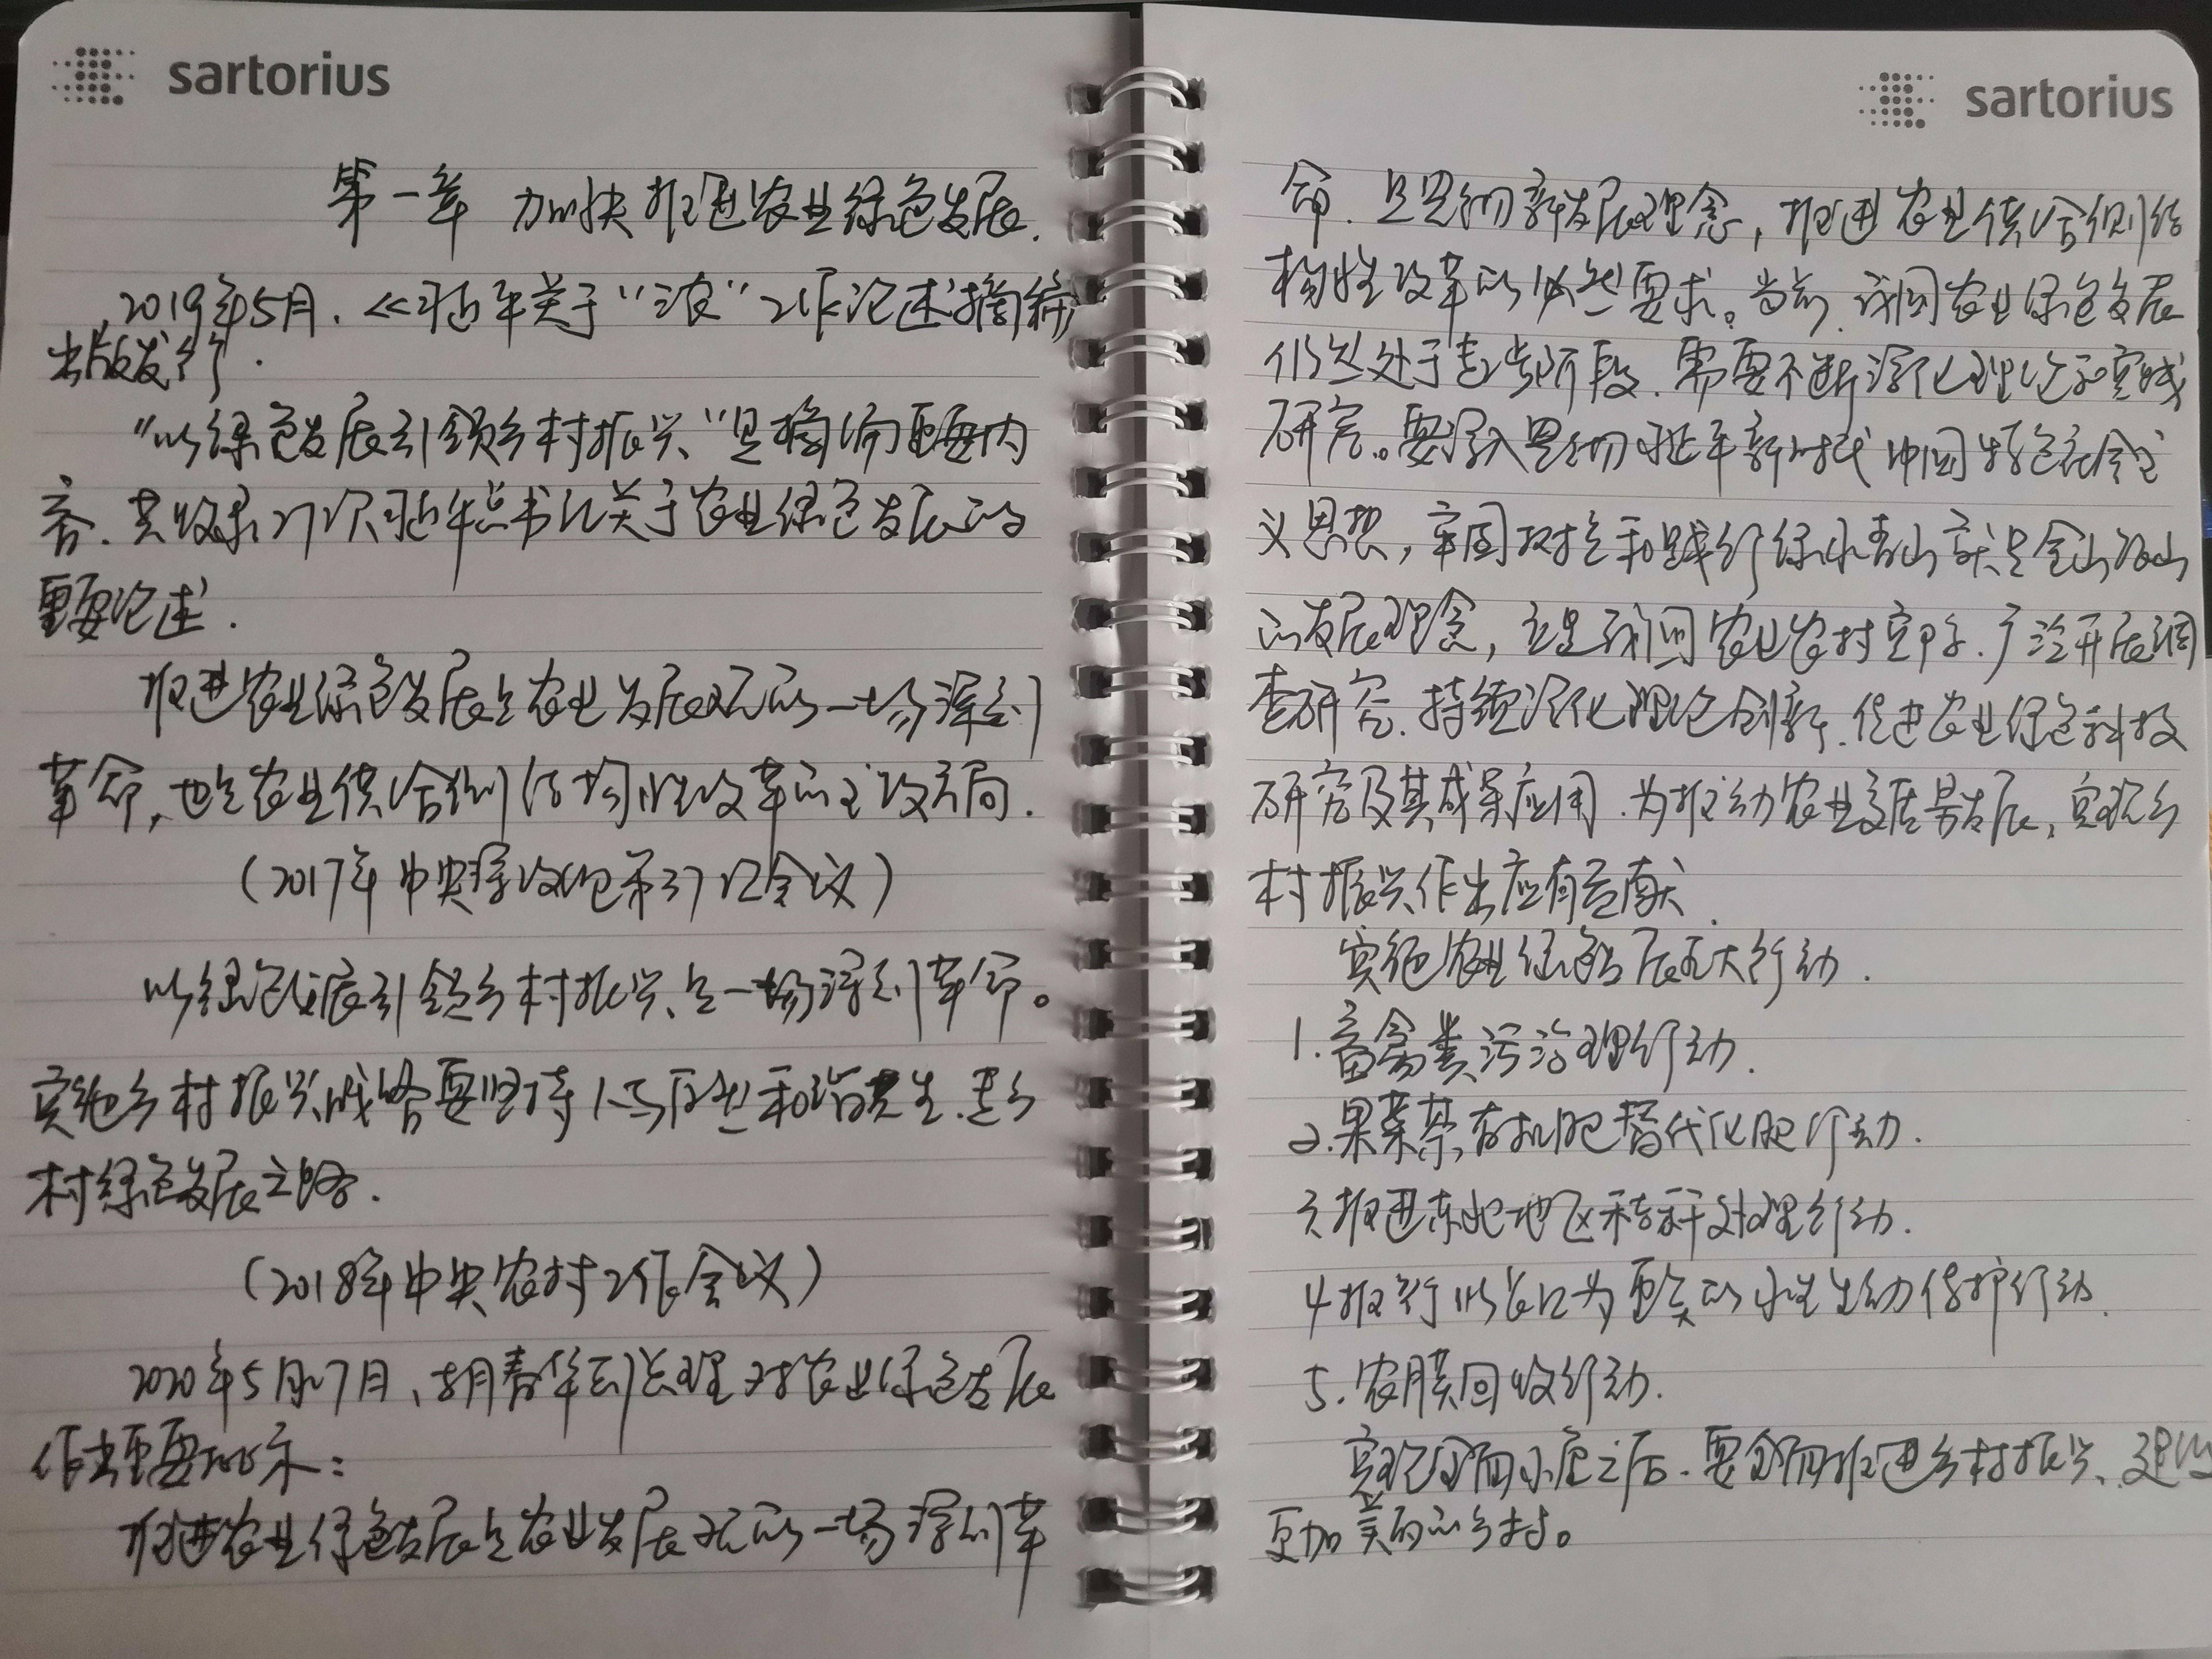 sartorius
第一章 加快推进农业绿色发展.
2019年5月.《习近平关于“三农”工作论述摘编》
出版发行.
“以绿色发展引领乡村振兴”是摘编重要内
容.共收录27次习近平总书记关于农业绿色发展的
重要论述.
推进农业绿色发展是农业发展观的一场深刻
革命,也是农业供给侧结构性改革的主攻方向.
(2017年中央深改组第37次会议)
以绿色发展引领乡村振兴是一场深刻革命。
实施乡村振兴战略要坚持人与自然和谐共生.走乡
村绿色发展之路.
(2018年中央农村工作会议)
2020年5月7月、胡春华副总理对农业绿色发展
作出重要批示:
推进农业绿色发展是农业发展观的一场深刻革
sartorius
命.是贯彻新发展理念,推进农业供给侧结
构性改革的必然要求。当前.我国农业绿色发展
仍然处于起步阶段.需要不断深化理论和实践
研究。要深入贯彻习近平新时代中国特色社会主
义思想,牢固树立和践行绿水青山就是金山银山
的发展理念,立足我国农业农村实际.广泛开展调
查研究.持续深化理论创新.促进农业绿色科技
研究及其成果应用.为推动农业高质量发展,实现乡
村振兴作出应有贡献.
实施农业绿色发展五大行动.
1.畜禽粪污治理行动.
2.果菜茶有机肥替代化肥行动.
3推进东北地区秸秆处理行动.
4推行以长江为重点的水生生物保护行动.
5.农膜回收行动.
实现全面小康之后.要全面推进乡村振兴、建设
更加美丽的乡村。